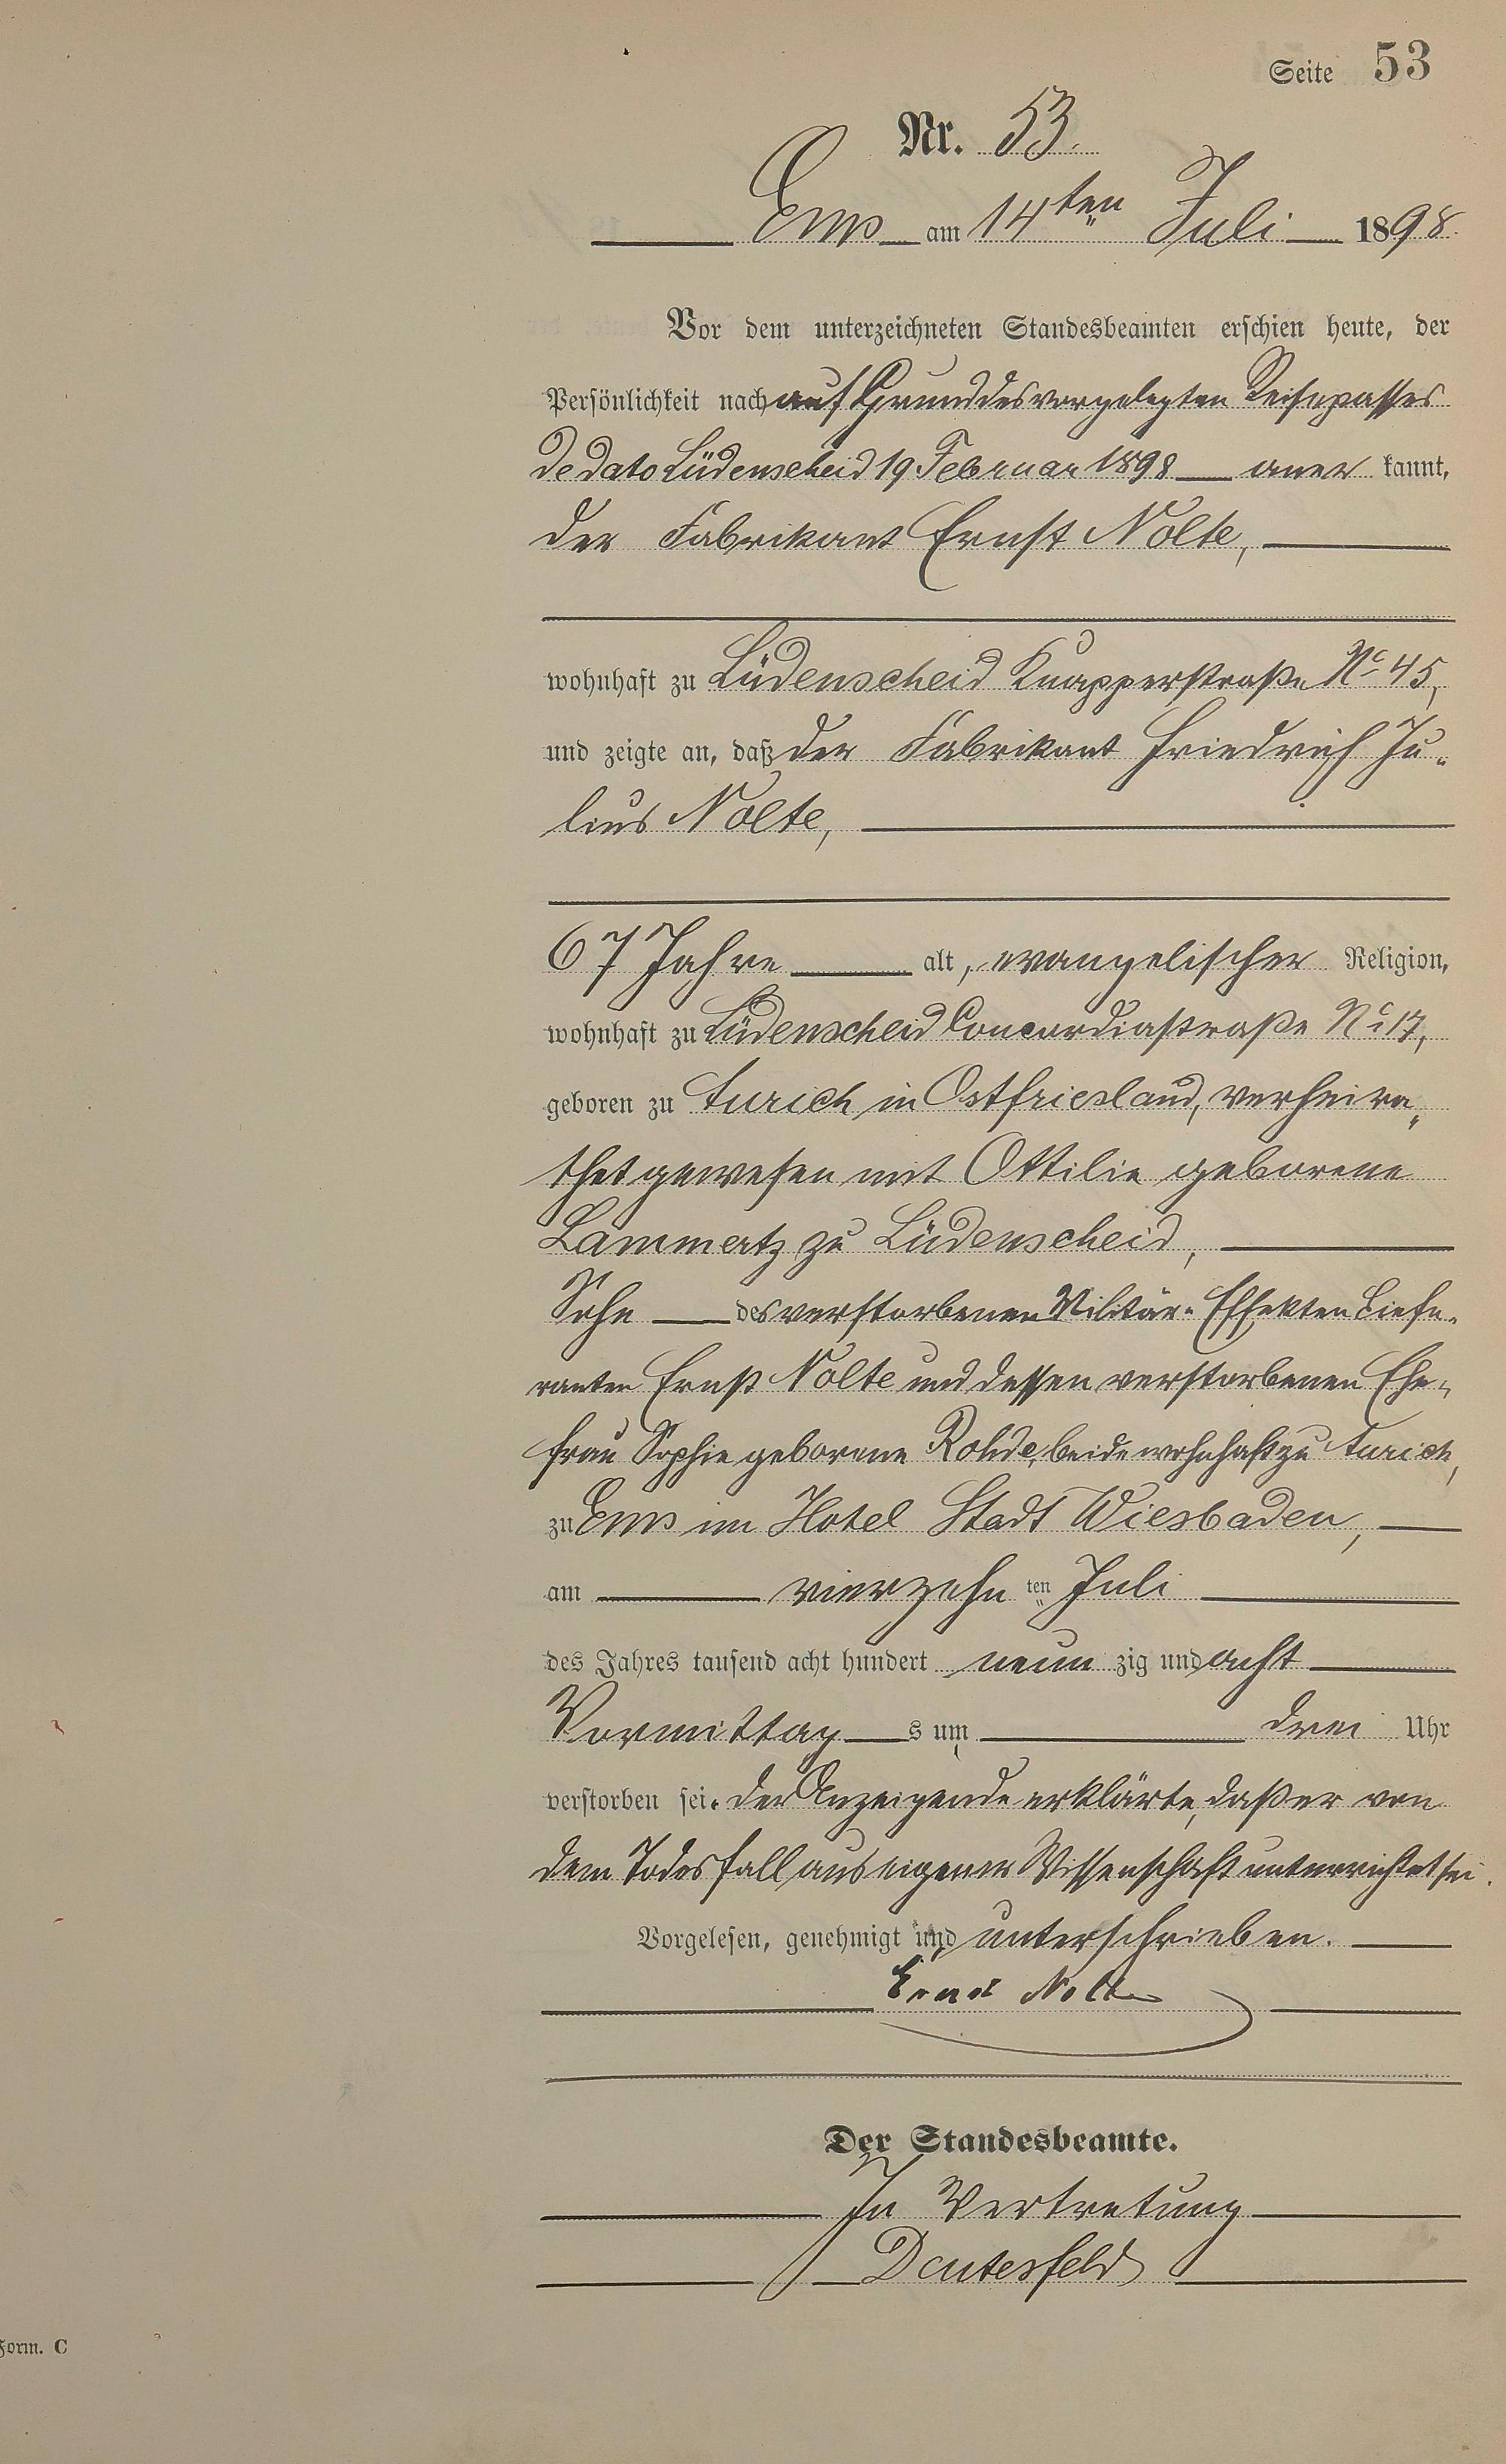 Seite 53
Nr. 53.
Ems am 14ten Juli 1898.
Vor dem unterzeichneten Standesbeamten erschien heute, der
Persönlichkeit nach auf Grund des vorgelegten Reisepasses
de dato Lüdenscheid 19. Februar 1898 aner kannt,
der Fabrikant Ernst Nolte,
wohnhaft zu Lüdenscheid Knapperstraße No 45,
und zeigte an, daß der Fabrikant Friedrich Ju-
lius Nolte,
67 Jahre alt, evangelischer Religion,
wohnhaft zu Lüdenscheid Concordiastraße No 17,
geboren zu Aurich in Ostfriesland, verheira-
thet gewesen mit Ottilie geborene
Lammertz zu Lüdenscheid,
Sohn des verstorbenen Militär-Effekten Liefe-
ranten Ernst Nolte und dessen verstorbenen Ehe-
frau Sophie geborene Rohde, beide wohnhaft zu Aurich,
zu Ems im Hotel Stadt Wiesbaden,
am vierzehn ten Juli
des Jahres tausend acht hundert neun zig und acht
Vormittag s um drei Uhr
verstorben sei. Der Anzeigende erklärte, daß er von
dem Todesfall aus eigener Wissenschaft unterrichtet sei.
Vorgelesen, genehmigt und unterschrieben.
Ernst Nolte
Der Standesbeamte.
In Vertretung
Deutesfeld
Form. C